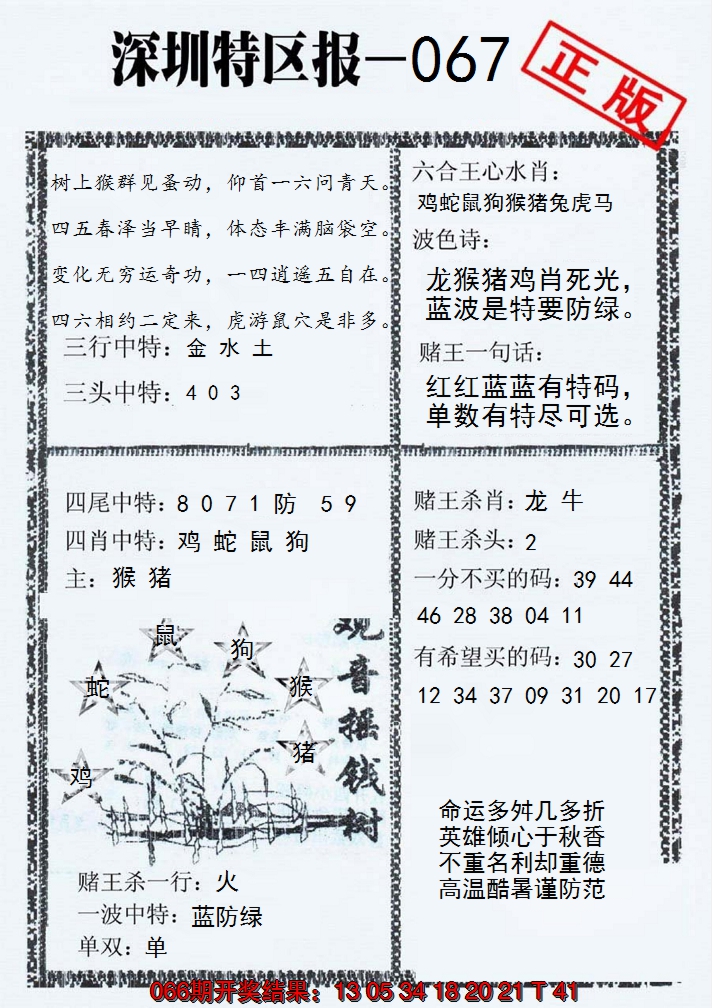 深圳特区报—067
正版
树上猴群见蚤动，仰首一六问青天。
四五春泽当早晴，体态丰满脑袋空。
变化无穷运奇功，一四逍遥五自在。
四六相约二定来，虎游鼠穴是非多。
三行中特：金 水 土
三头中特：4 0 3
六合王心水肖：
鸡蛇鼠狗猴猪兔虎马
波色诗：
龙猴猪鸡肖死光，
蓝波是特要防绿。
赌王一句话：
红红蓝蓝有特码，
单数有特尽可选。
四尾中特：8 0 7 1 防 5 9
四肖中特：鸡 蛇 鼠 狗
主：猴 猪
鼠
狗
蛇
猴
猪
鸡
观音摇钱树
赌王杀一行：火
一波中特：蓝防绿
单双：单
赌王杀肖：龙 牛
赌王杀头：2
一分不买的码：39 44
46 28 38 04 11
有希望买的码：30 27
12 34 37 09 31 20 17
命运多舛几多折
英雄倾心于秋香
不重名利却重德
高温酷暑谨防范
066期开奖结果：13 05 34 18 20 21 T 41